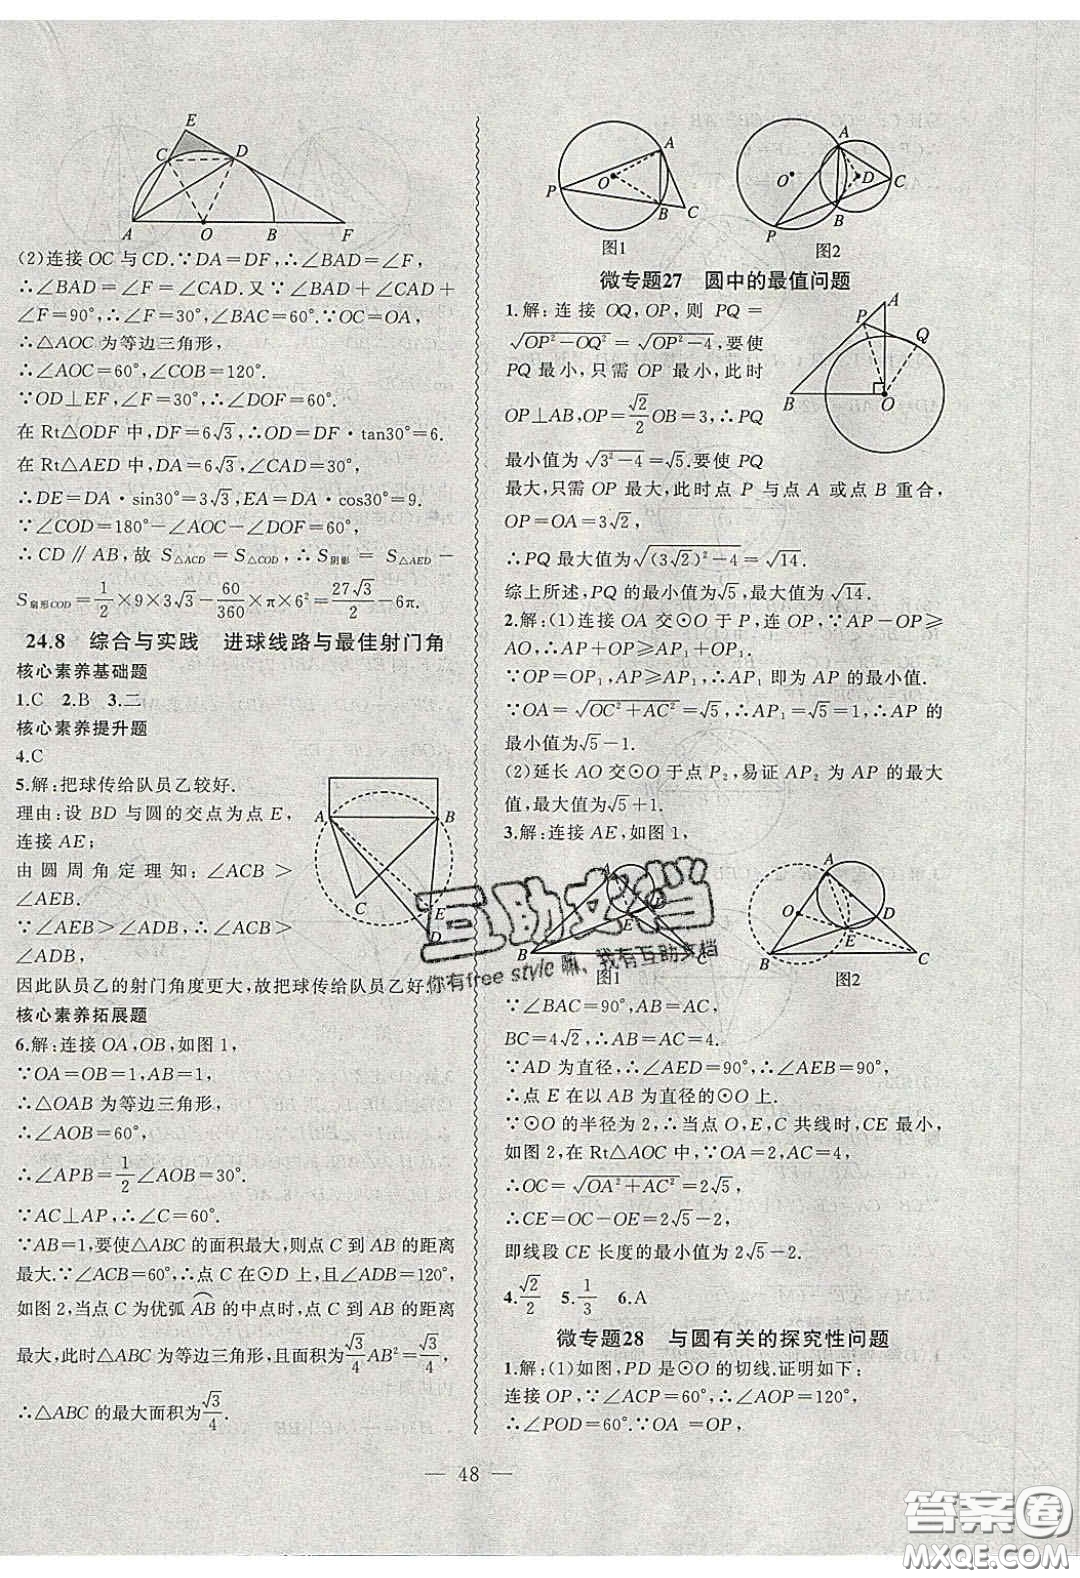 E
C
D
A
O
B
F
(2)连接 OC 与 CD.∵DA=DF,∴∠BAD=∠F,
∴∠BAD=∠F=∠CAD.又∵∠BAD+∠CAD+
∠F=90°,∴∠F=30°,∠BAC=60°.∵OC=OA,
∴△AOC 为等边三角形,
∴∠AOC=60°,∠COB=120°.
∵OD⊥EF,∠F=30°,∴∠DOF=60°.
在 Rt△ODF 中,DF=6√3,∴OD=DF·tan30°=6.
在 Rt△AED 中,DA=6√3,∠CAD=30°,
∴DE=DA·sin30°=3√3,EA=DA·cos30°=9.
∵∠COD=180°−∠AOC−∠DOF=60°,
∴CD∥AB,故 S△ACD=S△COD,∴S阴影=S△AED−
S扇形COD=1/2×9×3√3−60/360×π×6²=27√3/2−6π.
24.8 综合与实践 进球线路与最佳射门角
核心素养基础题
1.C 2.B 3.二
核心素养提升题
4.C
5.解:把球传给队员乙较好.
理由:设 BD 与圆的交点为点 E,
连接 AE;
由圆周角定理知:∠ACB>
∠AEB.
∵∠AEB>∠ADB,∴∠ACB>
∠ADB,
因此队员乙的射门角度更大,故把球传给队员乙好.
A
B
C
E
D
核心素养拓展题
6.解:连接 OA,OB,如图 1,
∵OA=OB=1,AB=1,
∴△OAB 为等边三角形,
∴∠AOB=60°,
∴∠APB=1/2∠AOB=30°.
∵AC⊥AP,∴∠C=60°.
∵AB=1,要使△ABC 的面积最大,则点 C 到 AB 的距离
最大.∵∠ACB=60°,∴点 C 在⊙D 上,且∠ADB=120°,
如图 2,当点 C 为优弧 AB 的中点时,点 C 到 AB 的距离
最大,此时△ABC 为等边三角形,且面积为√3/4AB²=√3/4,
∴△ABC 的最大面积为√3/4.
A
P
O
B
C
图1
A
O
D
C
B
P
图2
微专题27 圆中的最值问题
1.解:连接 OQ,OP,则 PQ=
√(OP²−OQ²)=√(OP²−4),要使
PQ 最小,只需 OP 最小,此时
OP⊥AB,OP=√2/2OB=3,∴PQ
最小值为√(3²−4)=√5.要使 PQ
最大,只需 OP 最大,此时点 P 与点 A 或点 B 重合,
OP=OA=3√2,
∴PQ 最大值为√((3√2)²−4)=√14.
综上所述,PQ 的最小值为√5,最大值为√14.
A
P
Q
B
O
2.解:(1)连接 OA 交⊙O 于 P₁,连 OP,∵OP+AP≥
AO,∴AP+OP≥AP₁+OP₁.
∵OP=OP₁,AP≥AP₁,∴AP₁ 即为 AP 的最小值.
∵OA=√(OC²+AC²)=√5,∴AP₁=√5−1,∴AP 的
最小值为√5−1.
(2)延长 AO 交⊙O 于点 P₂,易证 AP₂ 为 AP 的最大
值,最大值为√5+1.
3.解:连接 AE,如图 1,
A
D
E
B
C
图1
A
O
D
E
B
C
图2
互助文档
你有free style 嘛、我有互助文档
∵∠BAC=90°,AB=AC,
BC=4√2,∴AB=AC=4.
∵AD 为直径,∴∠AED=90°,∴∠AEB=90°,
∴点 E 在以 AB 为直径的⊙O 上.
∵⊙O 的半径为 2,∴当点 O,E,C 共线时,CE 最小,
如图 2,在 Rt△AOC 中,∵OA=2,AC=4,
∴OC=√(OA²+AC²)=2√5,
∴CE=OC−OE=2√5−2,
即线段 CE 长度的最小值为 2√5−2.
4.√2/2 5.1/3 6.A
微专题28 与圆有关的探究性问题
1.解:(1)如图,PD 是⊙O 的切线.证明如下:
连接 OP,∵∠ACP=60°,∴∠AOP=120°,
∴∠POD=60°.∵OA=OP,
— 48 —
答案圈
MXQE.COM